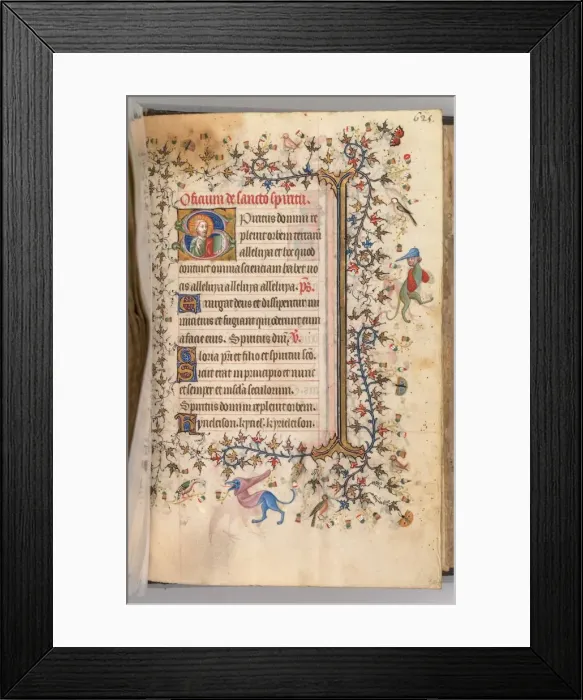 Officium de sancto spiritu.
Spiritus domini re
pleuit orbem terrarum
alleluya et hoc quod
continet omnia scientiam habet uo
cis alleluya alleluya alleluya. ps.
Exurgat deus et dissipentur ini
mici eius et fugiant qui oderunt eum
a facie eius. Spiritus dni. V.
Gloria pri et filio et spiritui sco.
Sicut erat in principio et nunc
et semper et in scla seculorum.
Spiritus domini repleuit orbem.
Kyrieleison. kyriel. kyrieleison.